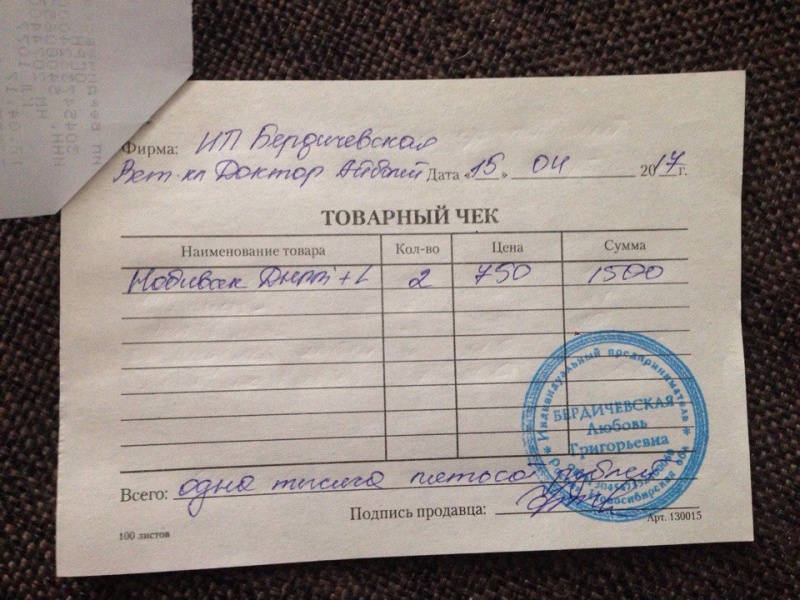 Фирма: ИП Бердичевская
Вет. кл Доктор Айболит Дата «15» 04 2017г.
ТОВАРНЫЙ ЧЕК
Наименование товара Кол-во Цена Сумма
Нобивак DHPPi + L 2 750 1500
Индивидуальный предприниматель
БЕРДИЧЕВСКАЯ
Любовь
Григорьевна
Новосибирская обл
Всего: одна тысяча пятьсот рублей
Подпись продавца:
100 листов
Арт. 130015